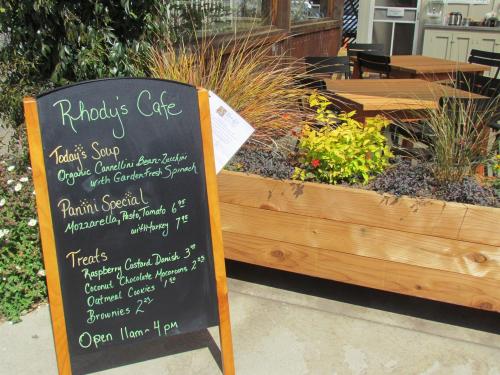 Rhody's Cafe
Today's Soup
Organic Cannellini Bean-Zucchini
with Garden Fresh Spinach
Panini Special
Mozzarella, Pesto, Tomato 6.95
with Turkey 7.95
Treats
Raspberry Custard Danish 3.50
Coconut Chocolate Macaroons 2.25
Oatmeal Cookies 1.50
Brownies 2.25
Open 11am - 4pm